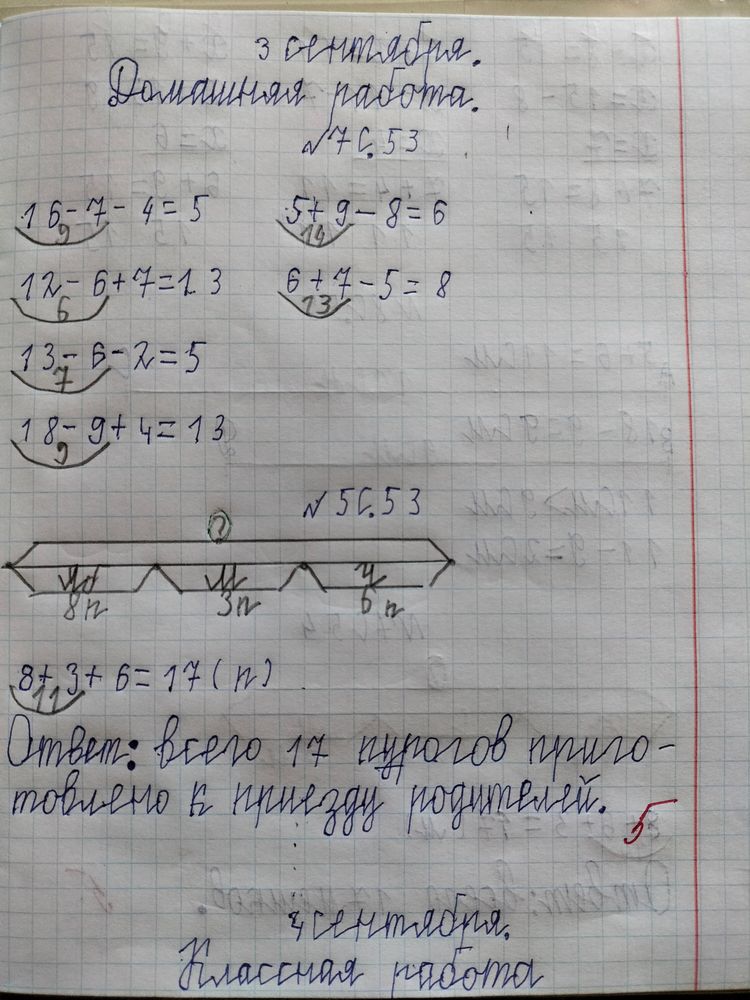 3 сентября.
Домашная работа.
№7 С.53
16-7-4=5 5+9-8=6
9 14
12-6+7=13 6+7-5=8
6 13
13-6-2=5
7
18-9+4=13
9
№5 С.53
?
М Ч
8п 3п 6п
8+3+6=17(п)
11
Ответ: всего 17 пурогов приго-
товлено к приезду родителей.
5
4 сентября.
Классная работа